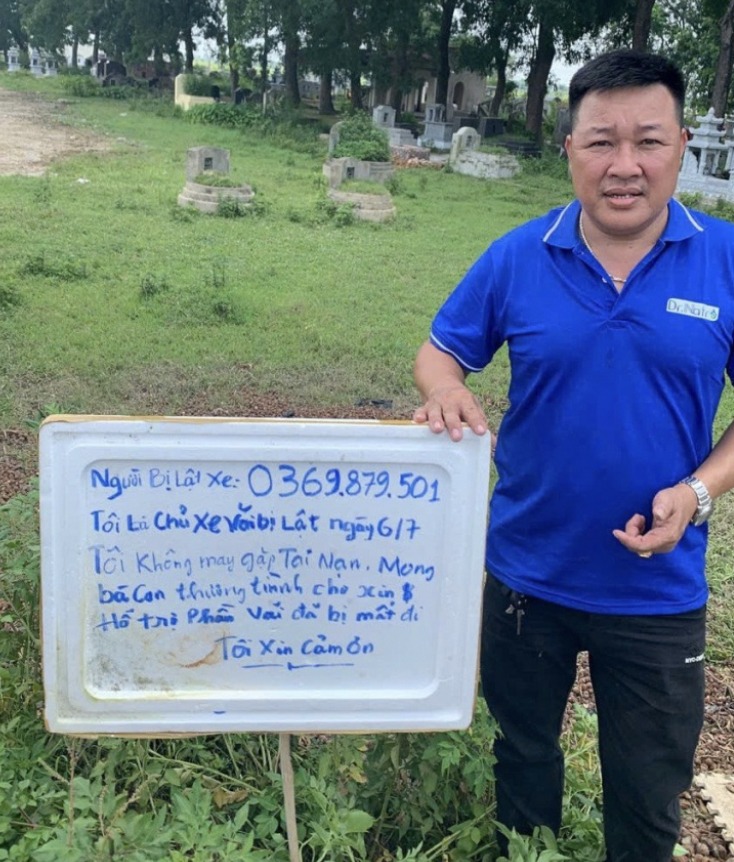 Người Bị Lật Xe: 0369.879.501
Tôi Là Chủ Xe Vải bị Lật ngày 6/7
Tôi Không may gặp Tai Nạn. Mong
bà Con thương tình cho xin $
Hỗ trợ Phần Vải đã bị mất đi
Tôi Xin Cảm ơn
Dr.Nat